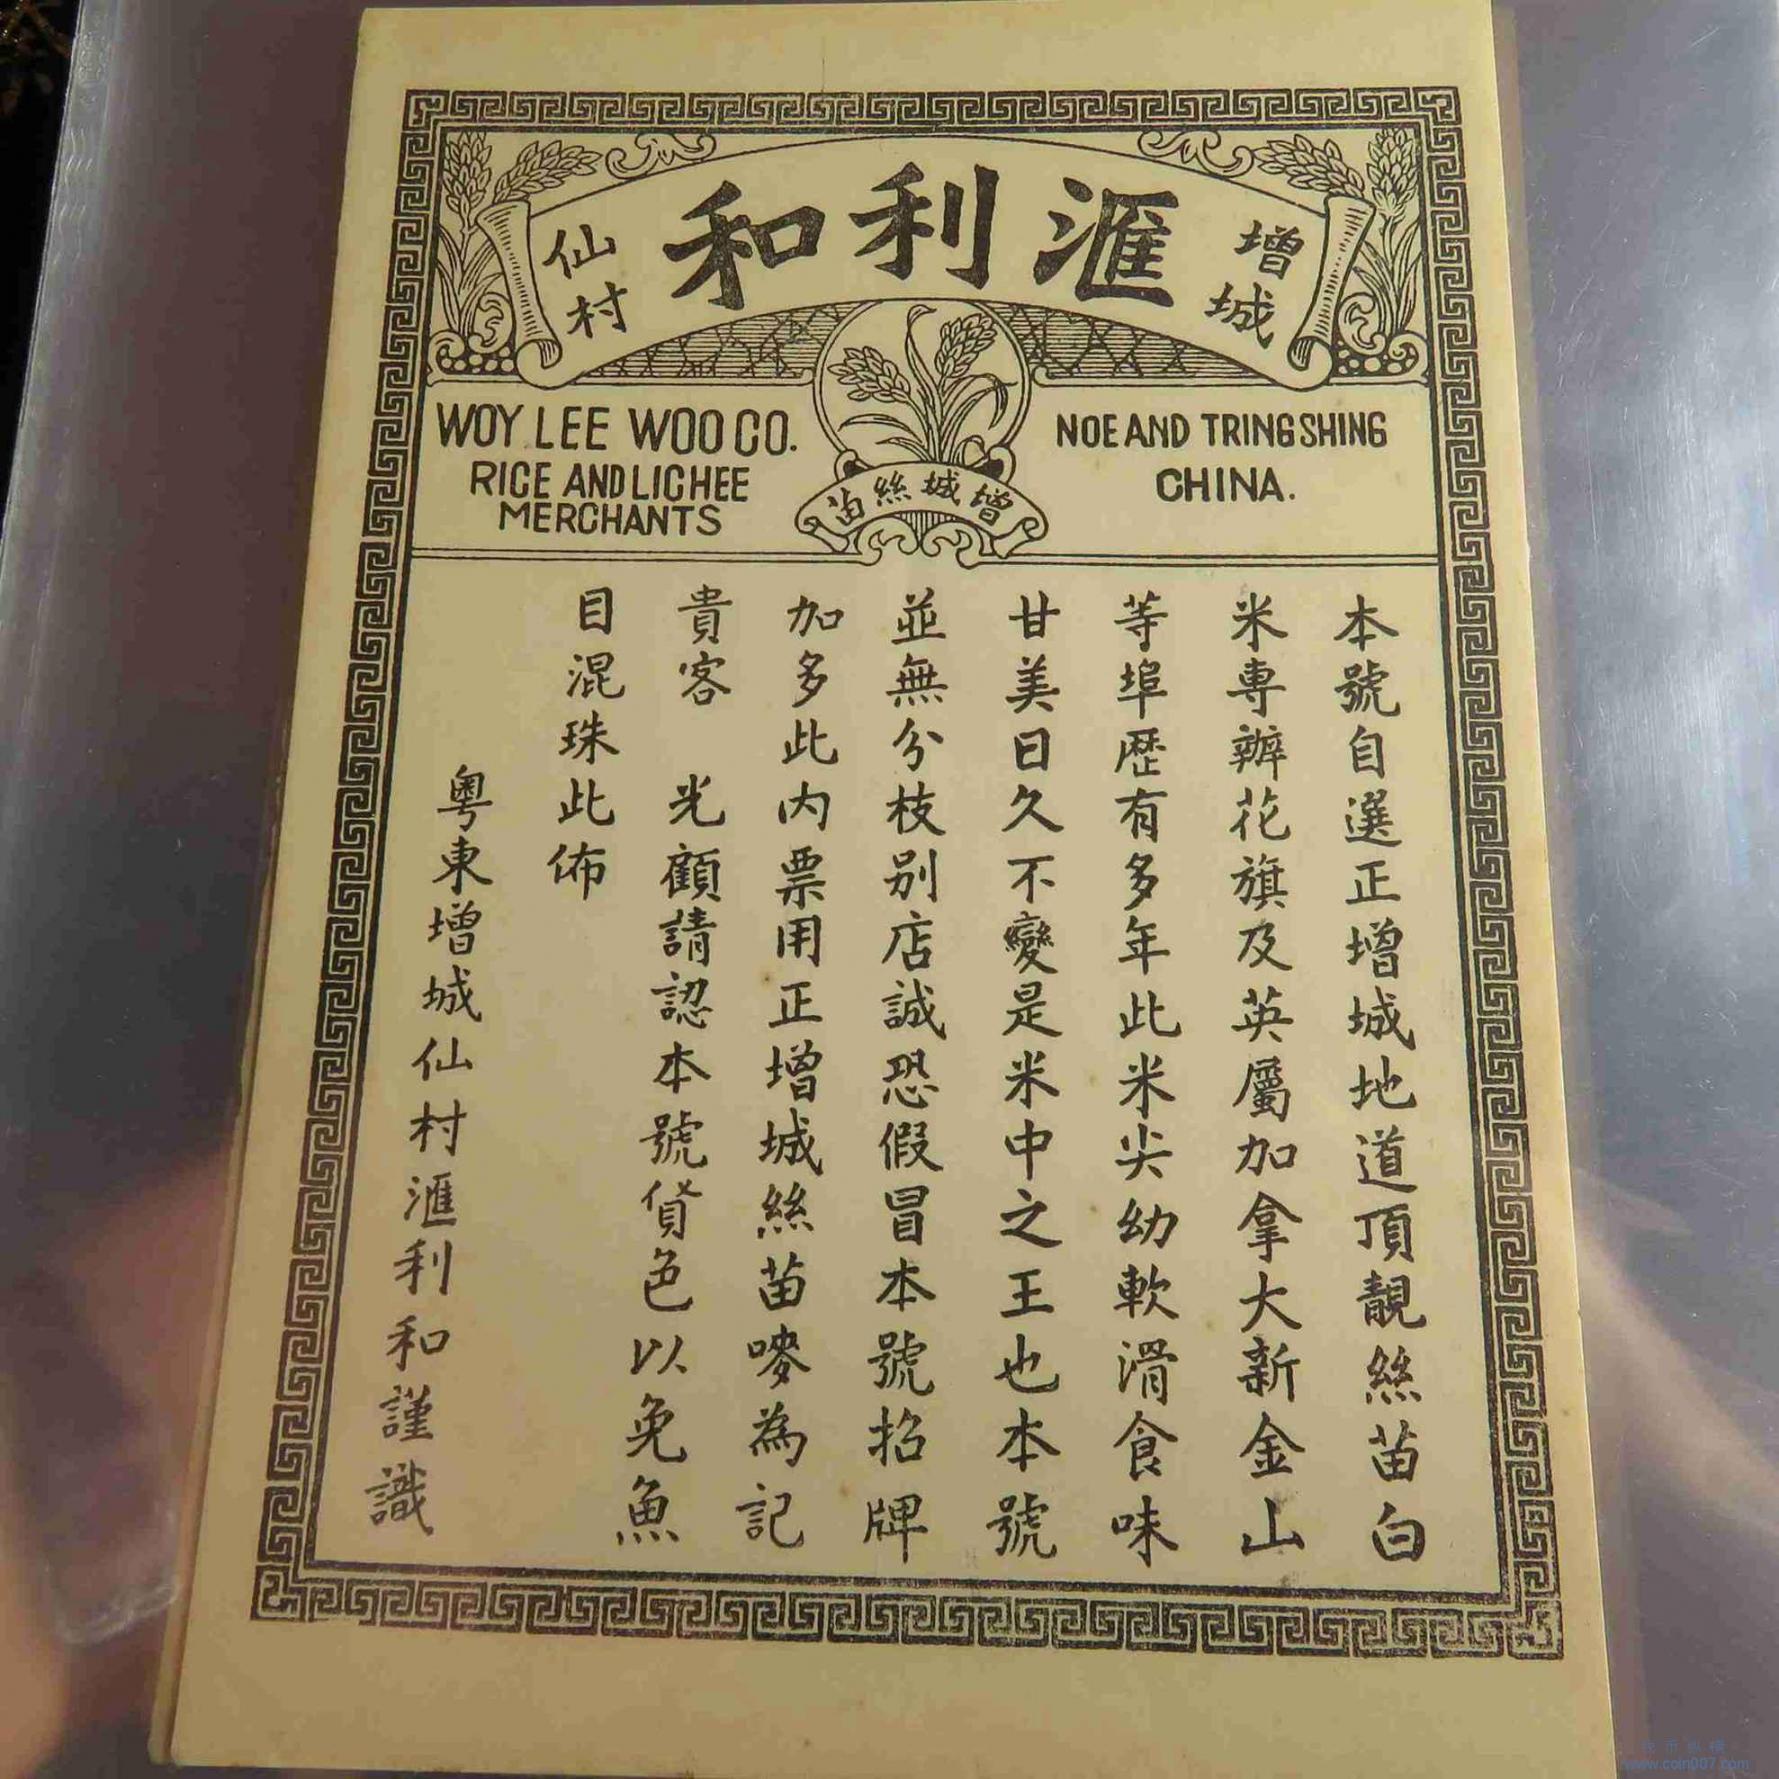 增城
滙利和
仙村
WOY LEE WOO CO.
RICE AND LICHEE
MERCHANTS
NOE AND TRING SHING
CHINA.
增城絲苗
本號自選正增城地道頂靚絲苗白
米專辦花旗及英屬加拿大新金山
等埠歷有多年此米尖幼軟滑食味
甘美日久不變是米中之王也本號
並無分枝别店誠恐假冒本號招牌
加多此内票用正增城絲苗嘜為記
貴客 光顧請認本號貨色以免魚
目混珠此佈
粵東增城仙村滙利和謹識
www.coin007.com